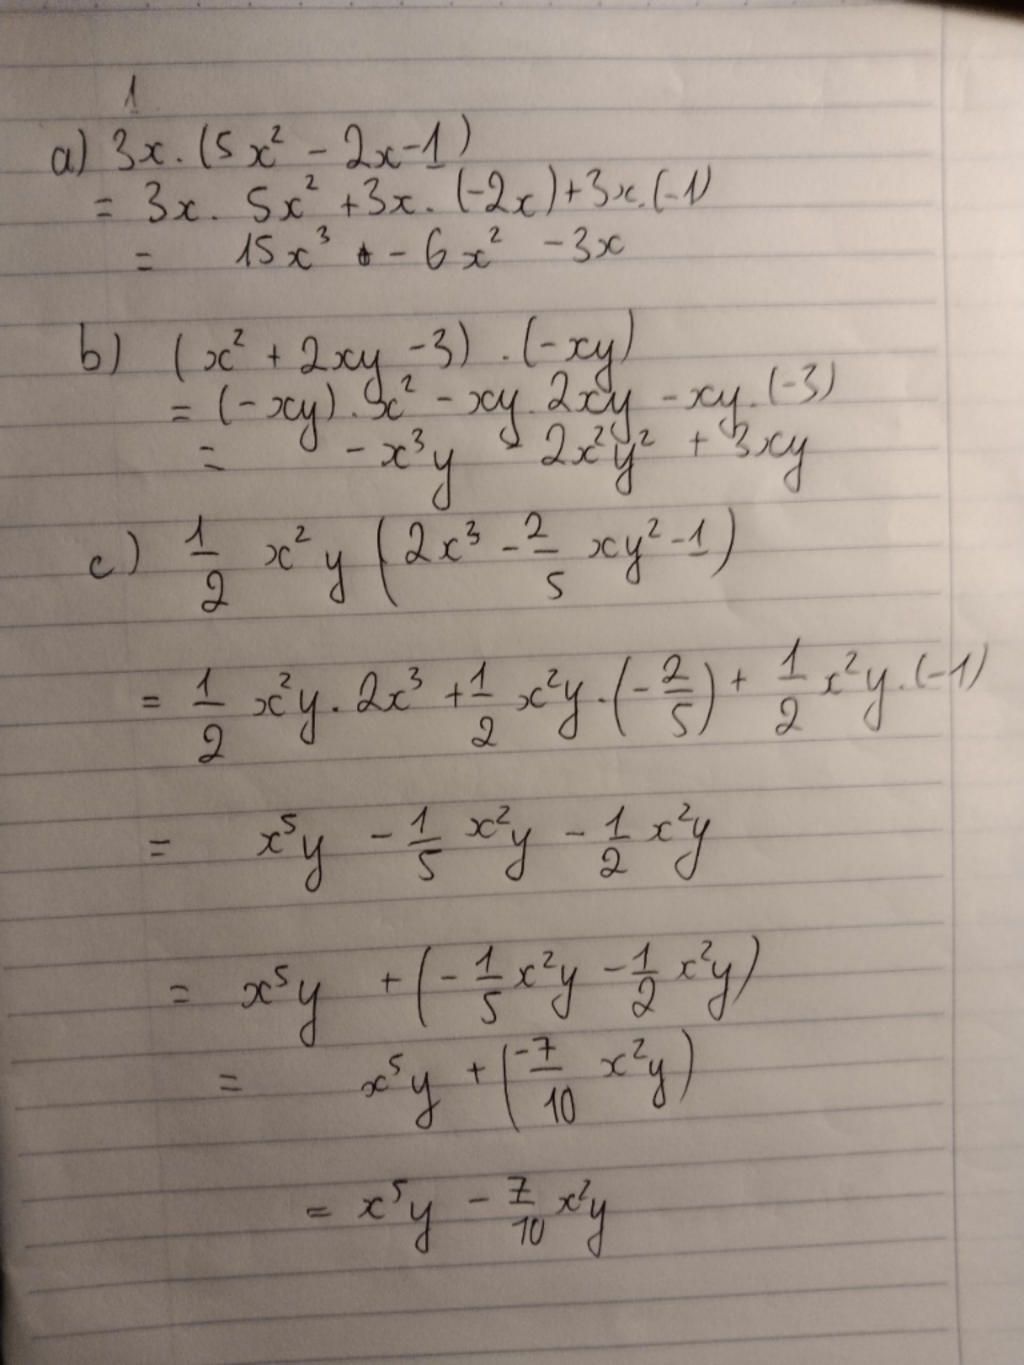 1
a) 3x . (5x² - 2x - 1)
= 3x . 5x² + 3x . (-2x) + 3x . (-1)
= 15x³ - 6x² - 3x
b) (x² + 2xy - 3) . (-xy)
= (-xy) . x² - xy . 2xy - xy . (-3)
= - x³y - 2x²y² + 3xy
c) 1/2 x²y (2x³ - 2/5 xy² - 1)
= 1/2 x²y . 2x³ + 1/2 x²y . (-2/5) + 1/2 x²y . (-1)
= x⁵y - 1/5 x²y - 1/2 x²y
= x⁵y + (- 1/5 x²y - 1/2 x²y)
= x⁵y + (-7/10 x²y)
= x⁵y - 7/10 x²y